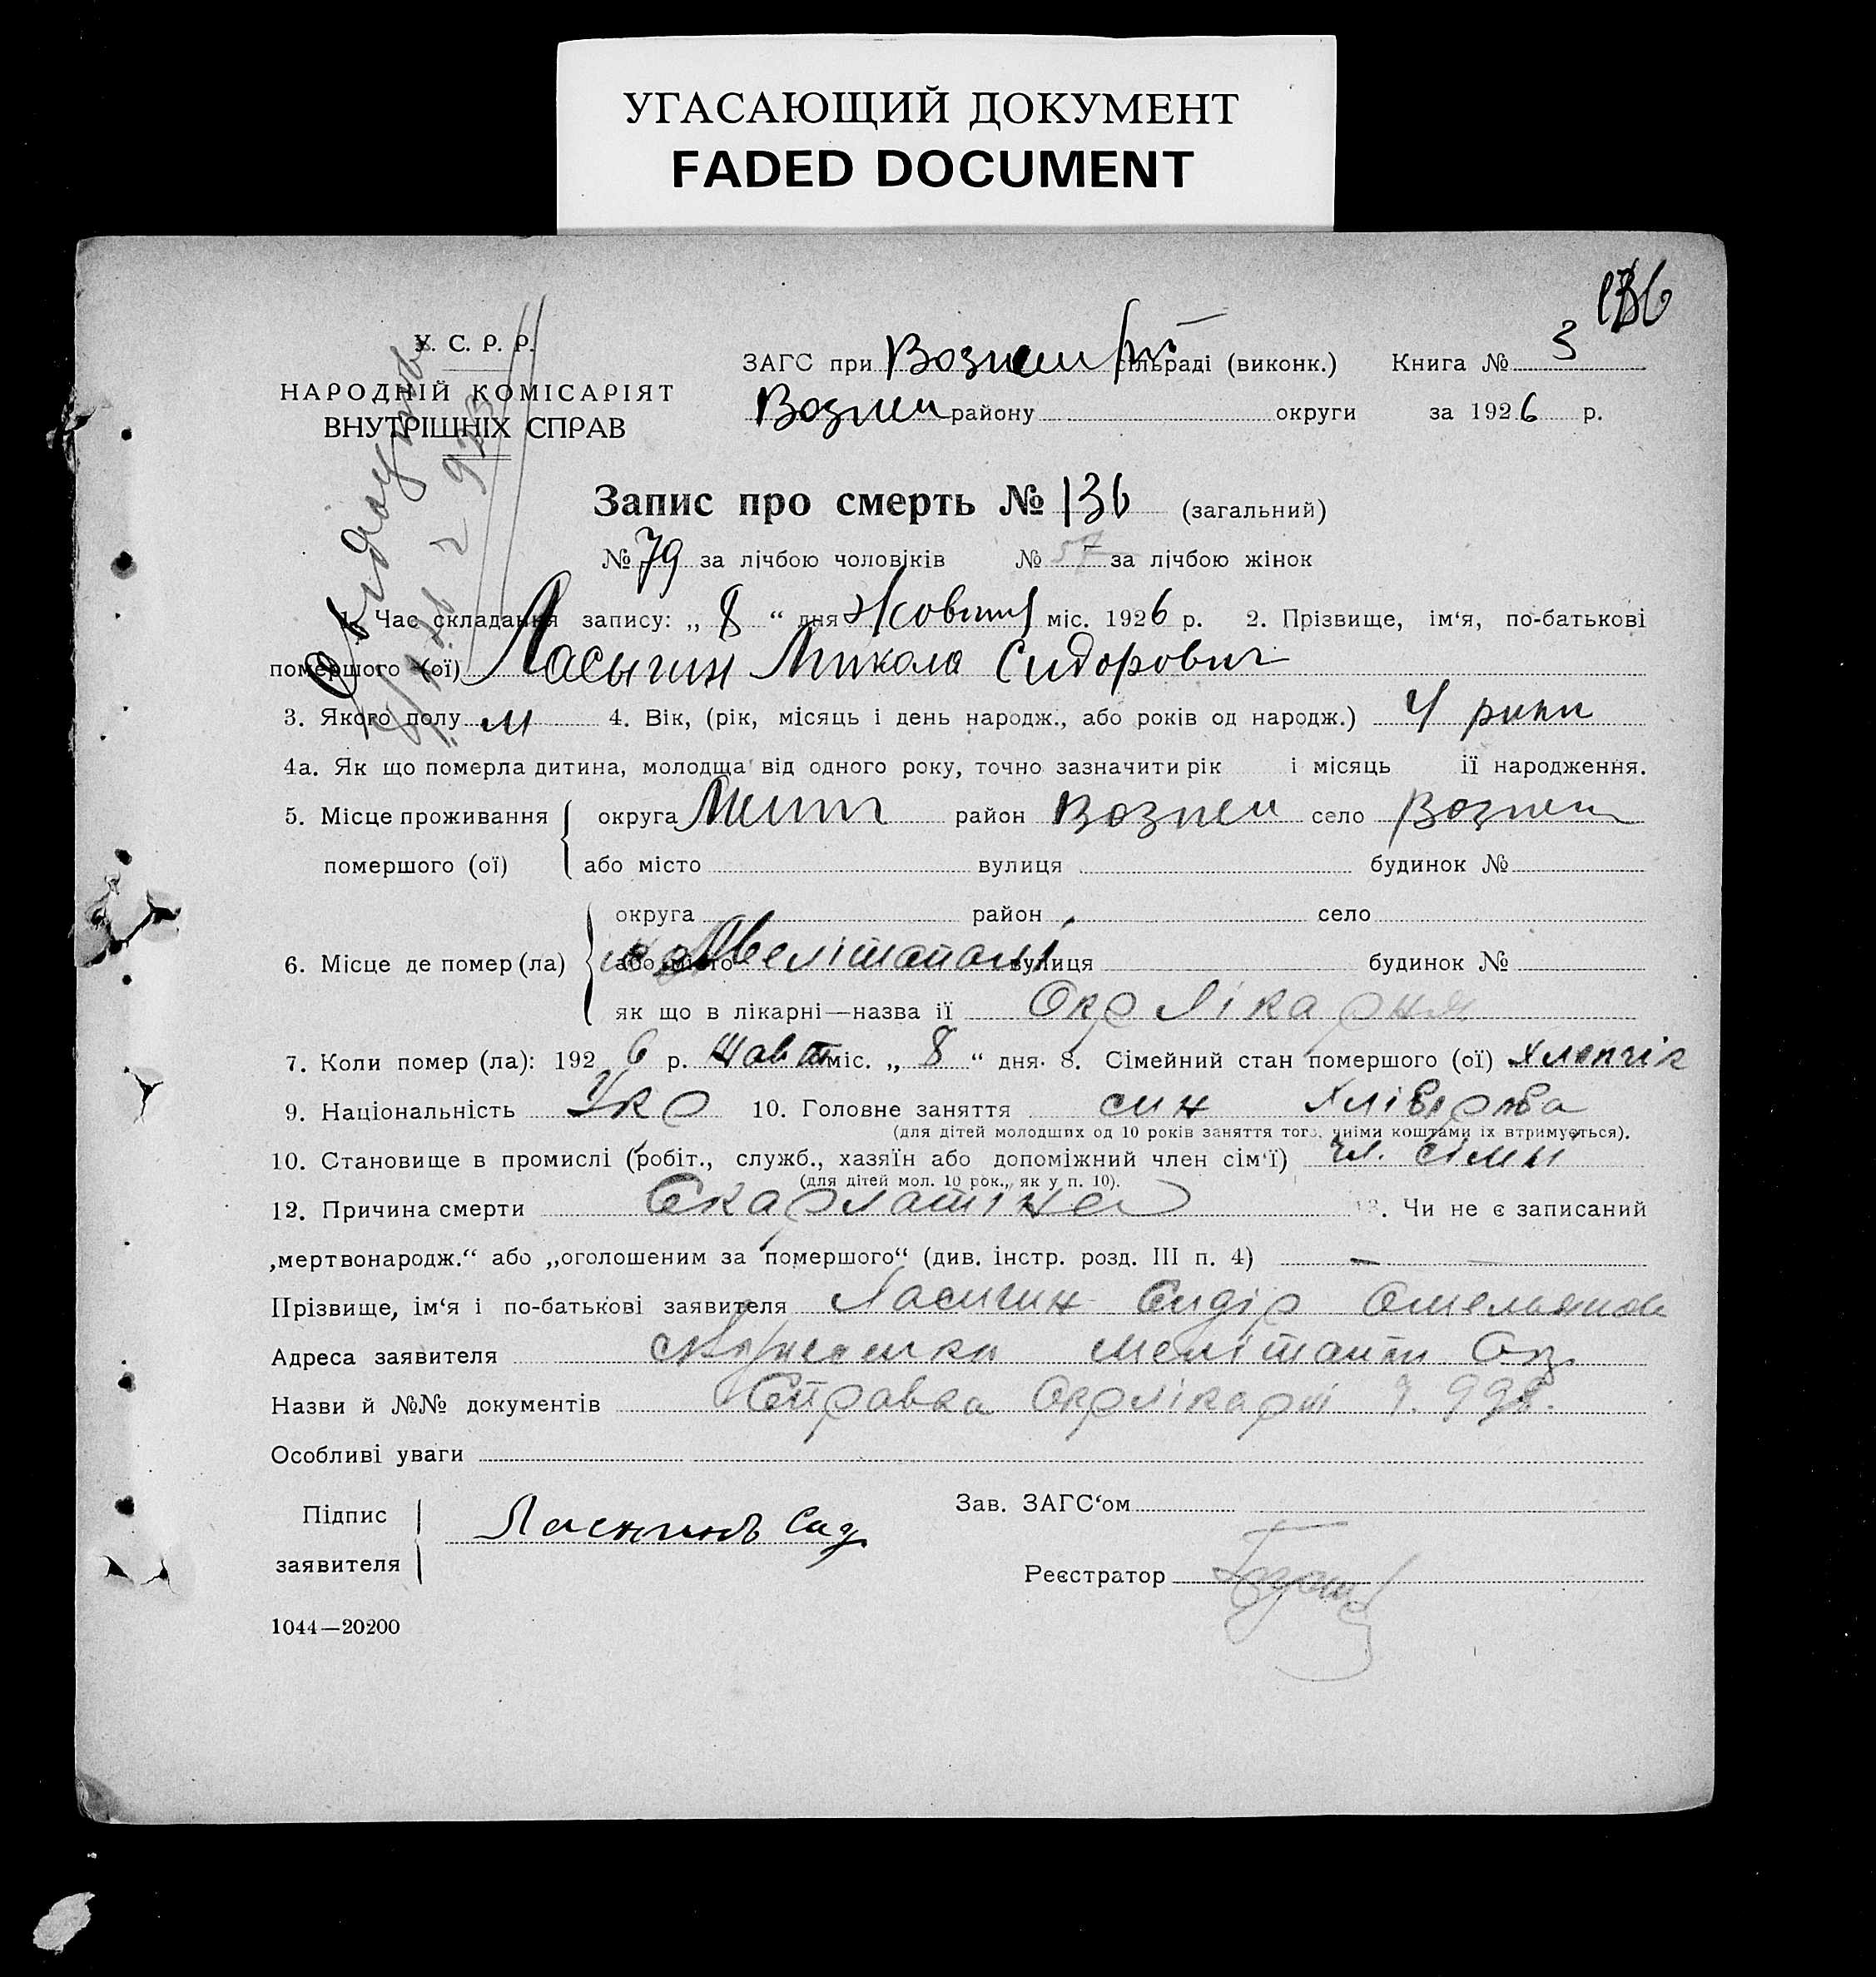 УГАСАЮЩИЙ ДОКУМЕНТ
FADED DOCUMENT
136
У. С. Р. Р.
НАРОДНІЙ КОМІСАРІЯТ
ВНУТРІШНІХ СПРАВ
ЗАГС при Вознен сільраді (виконк.) Книга № 3
Вознен району округи за 1926 р.
Запис про смерть № 136 (загальний)
№ 79 за лічбою чоловіків № 57 за лічбою жінок
1. Час складання запису: „ 8 “ дня Жовтня міс. 1926 р. 2. Прізвище, ім‘я, по-батькові
помершого (ої) Ласыгин Микола Сидорович
3. Якого полу м 4. Вік, (рік, місяць і день народж., або років од народж.) 4 роки
4а. Як що померла дитина, молодща від одного року, точно зазначити рік і місяць її народження.
5. Місце проживання округа Мелит район Вознен село Вознен
помершого (ої) або місто вулиця будинок №
округа район село
6. Місце де помер (ла) або місто Мелітополі вулиця будинок №
як що в лікарні—назва її Окр Лікарня
7. Коли помер (ла): 1926 р. Жовт міс. „ 8 “ дня. 8. Сімейний стан помершого (ої) хлопчік
9. Національність Укр 10. Головне заняття син хлібороба
(для дітей молодших од 10 років заняття того, чиїми коштами їх втримується).
10. Становище в промислі (робіт., служб., хазяїн або допоміжний член сім‘ї) чл. сімьи
(для дітей мол. 10 рок., як у п. 10).
12. Причина смерти Скарлатіна 13. Чи не є записаний
„мертвонародж.“ або „оголошеним за помершого“ (див. інстр. розд. III п. 4) —
Прізвище, ім‘я і по-батькові заявителя Ласигин Сидір Омельянов
Адреса заявителя Мелітоп
Назви й №№ документів Справка Окрлікарні Ч. 998.
Особливі уваги
Підпис
заявителя
Ласыгинъ Сид
Зав. ЗАГС‘ом
Реєстратор
1044—20200